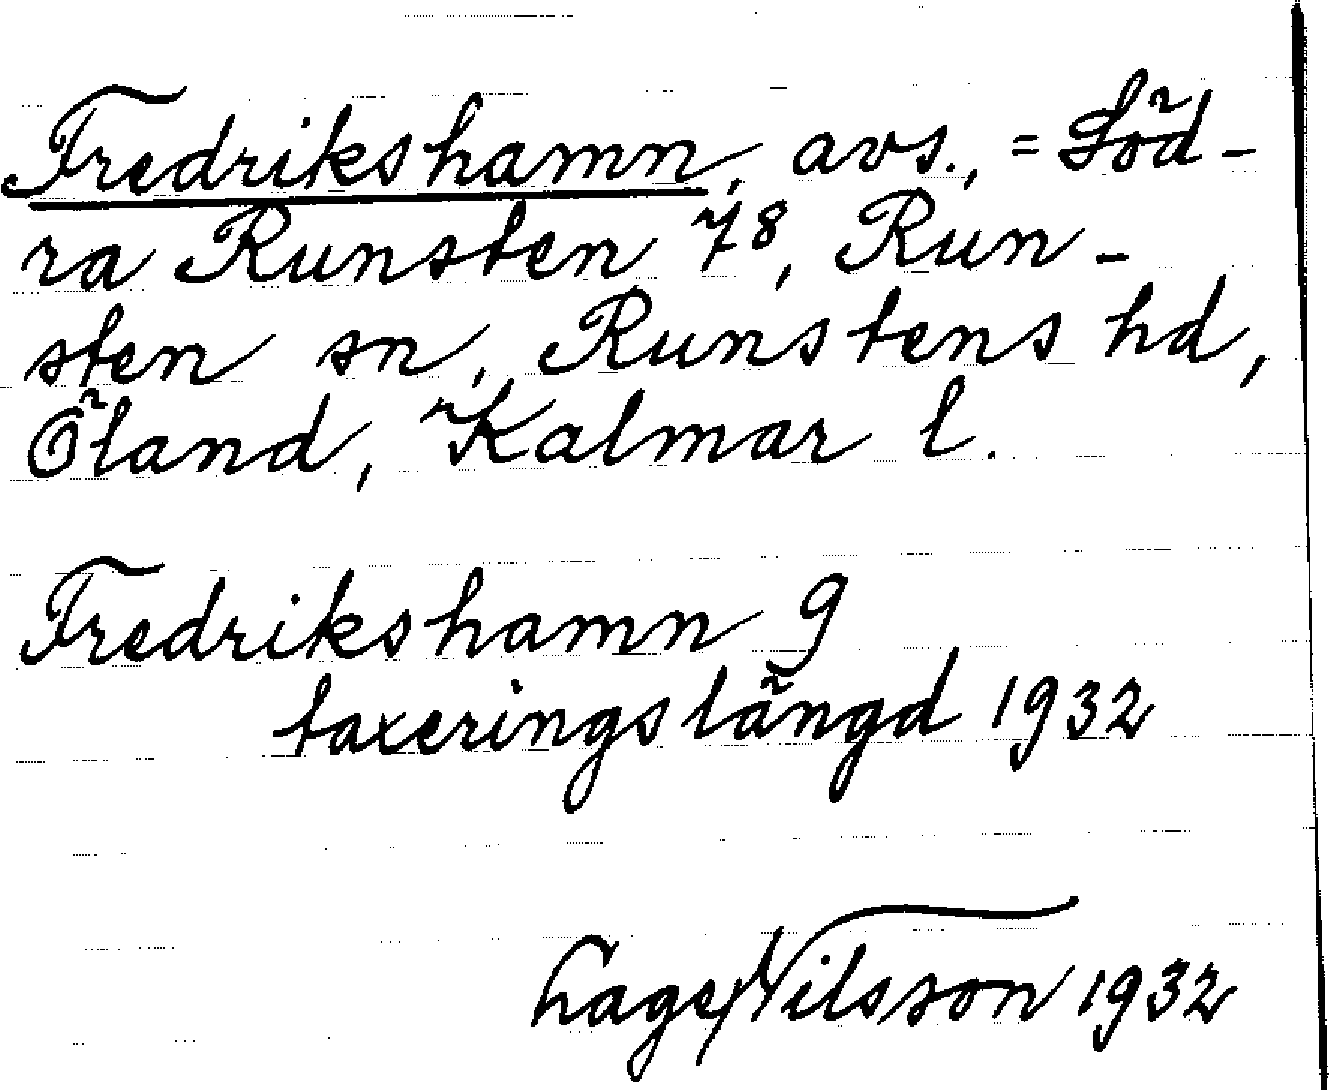 Fredrikshamn, avs., = Söd-
ra Runsten 7⁸, Run-
sten sn, Runstens hd,
Öland, Kalmar l.
Fredrikshamn 9
taxeringslängd 1932
Lage Nilsson 1932